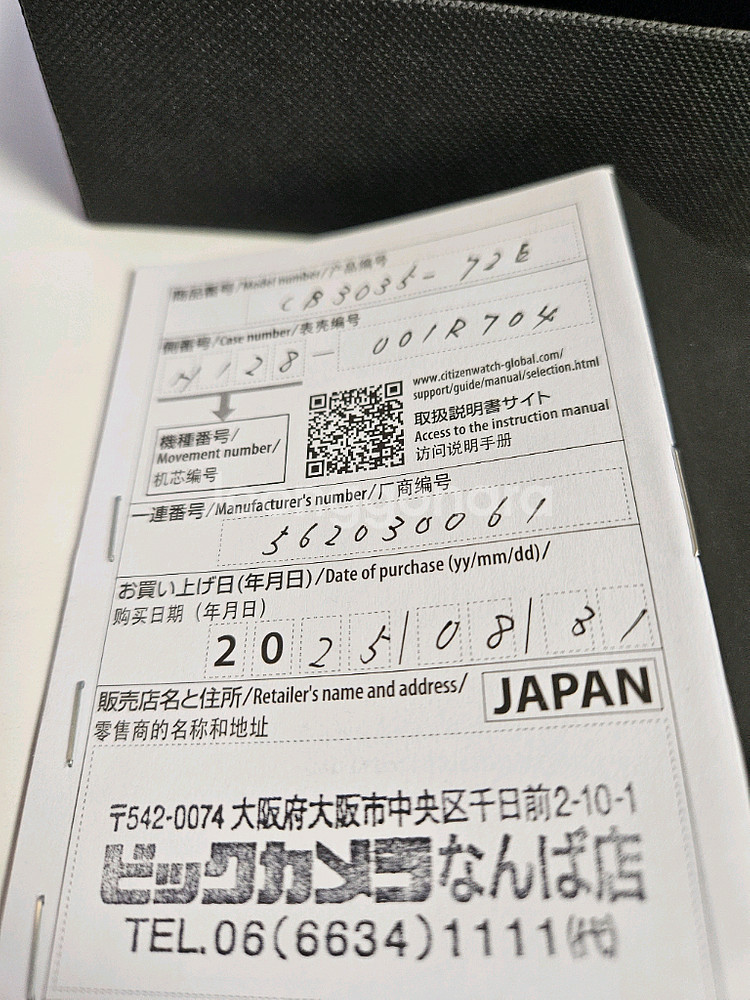 商品番号/Model number/产品编号
CB3035-72E
側番号/Case number/表壳编号
H128-001R704
www.citizenwatch-global.com/
support/guide/manual/selection.html
取扱説明書サイト
Access to the instruction manual
访问说明手册
機種番号/
Movement number/
机芯编号
一連番号/Manufacturer's number/厂商编号
562030061
お買い上げ日(年月日)/Date of purchase (yy/mm/dd)/
购买日期（年月日）
2025/08/31
販売店名と住所/Retailer's name and address/
零售商的名称和地址
JAPAN
〒542-0074 大阪府大阪市中央区千日前2-10-1
ビックカメラなんば店
TEL.06(6634)1111㈹